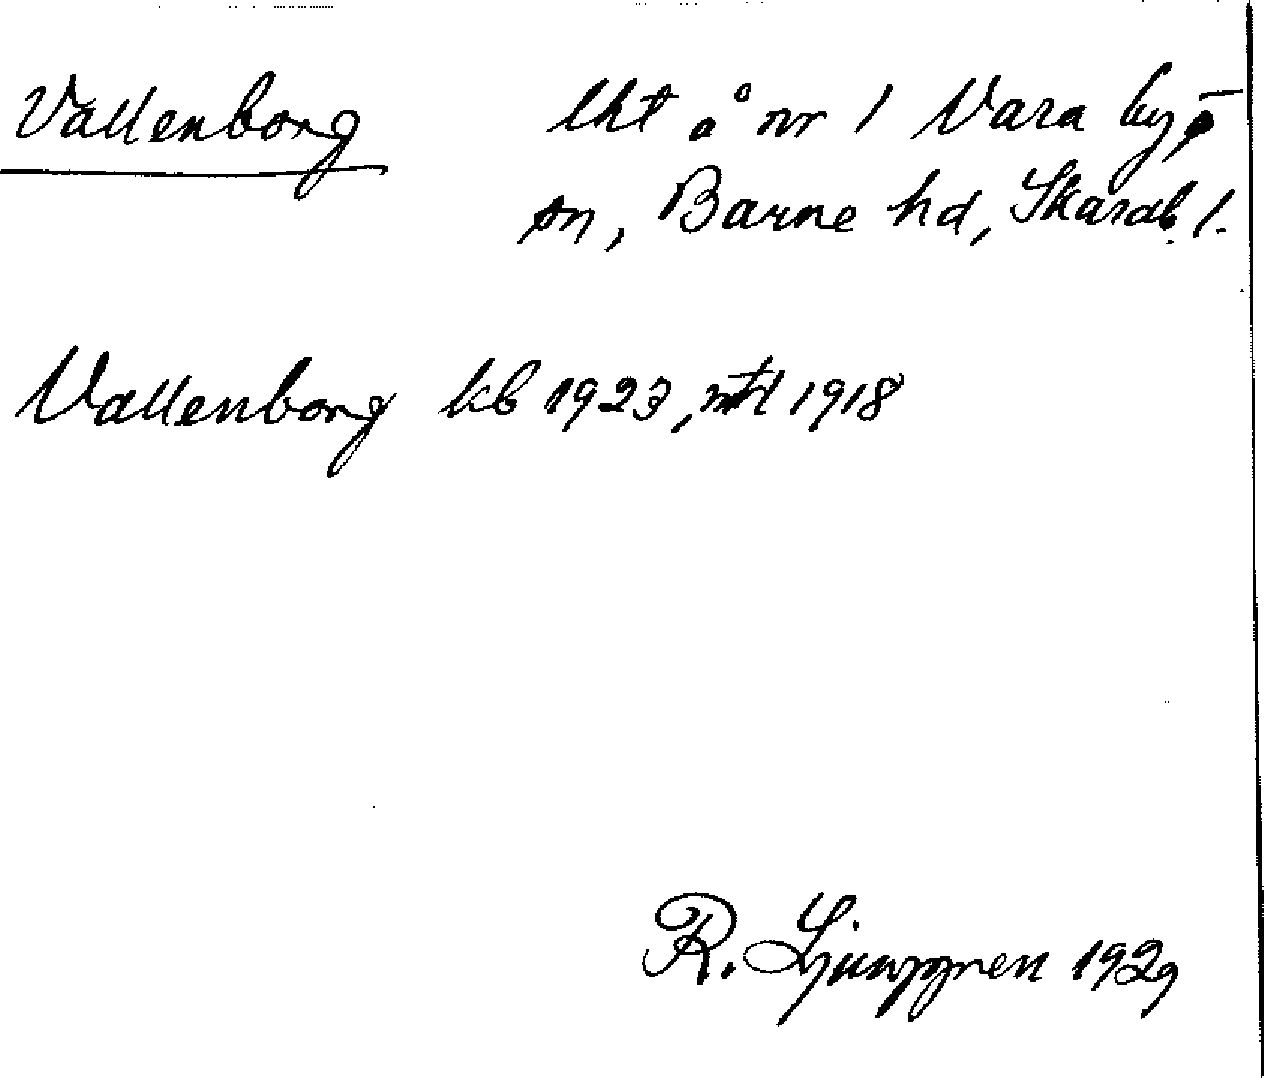 Vallenborg lht å nr 1 Vara by,
sn, Barne hd, Skarab. l.
Vallenborg kb 1923, mtl 1918
R. Ljunggren 1929